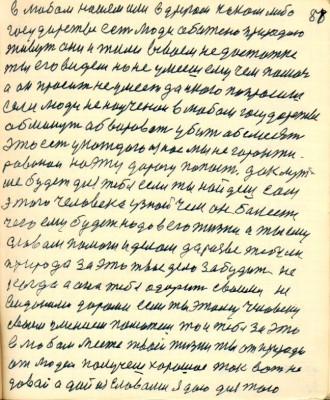 в любом нашем или в другом каком либо 87
государстве есть люди обижено природою
живут они и тили всвоем недостатке
ты его видем но не умеешь ему чем помоч
а он просит не умеет данного попросит
Если люди не научении в любом государстве
обмануть обворовать убить обсмеять
это есть у каждого такое мы не гаранти-
рованои на эту дорогу попаст. дак луч-
ше будет для тебя если ты найдеш сам
этого человека узнай чем он болеет
чего ему будет надо в его жизни а ты ему
словам помоги и делом да разве тебе
природа за это твое дело забудит не
когда а она тебя одарит своими не
виданными дарами если ты этому человеку
своим умением помогеш то и тебя за это
в любом месте твоей жизни ты от природы
от людей получеш хорошое так вот не
довай а дай их словами я даю для того